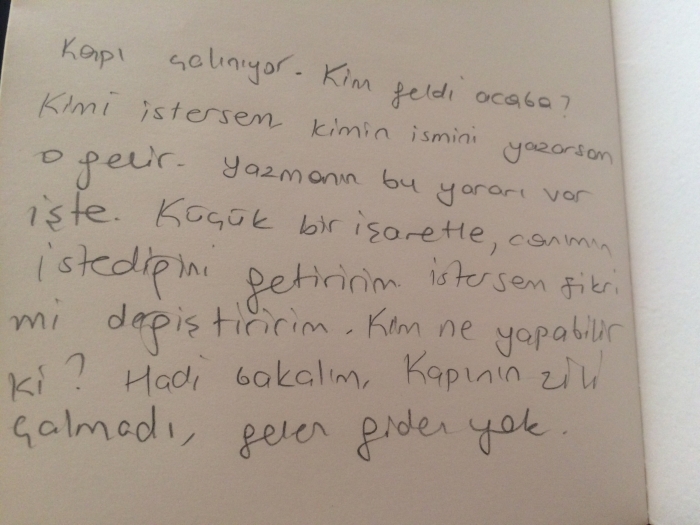 Kapı çalınıyor. Kim geldi acaba?
Kimi istersem kimin ismini yazarsam
o gelir. Yazmanın bu yararı var
işte. Küçük bir işaretle, canımın
istediğini getiririm. istersem fikri
mi değiştiririm. Kim ne yapabilir
ki? Hadi bakalım, Kapının zili
çalmadı, gelen giden yok.